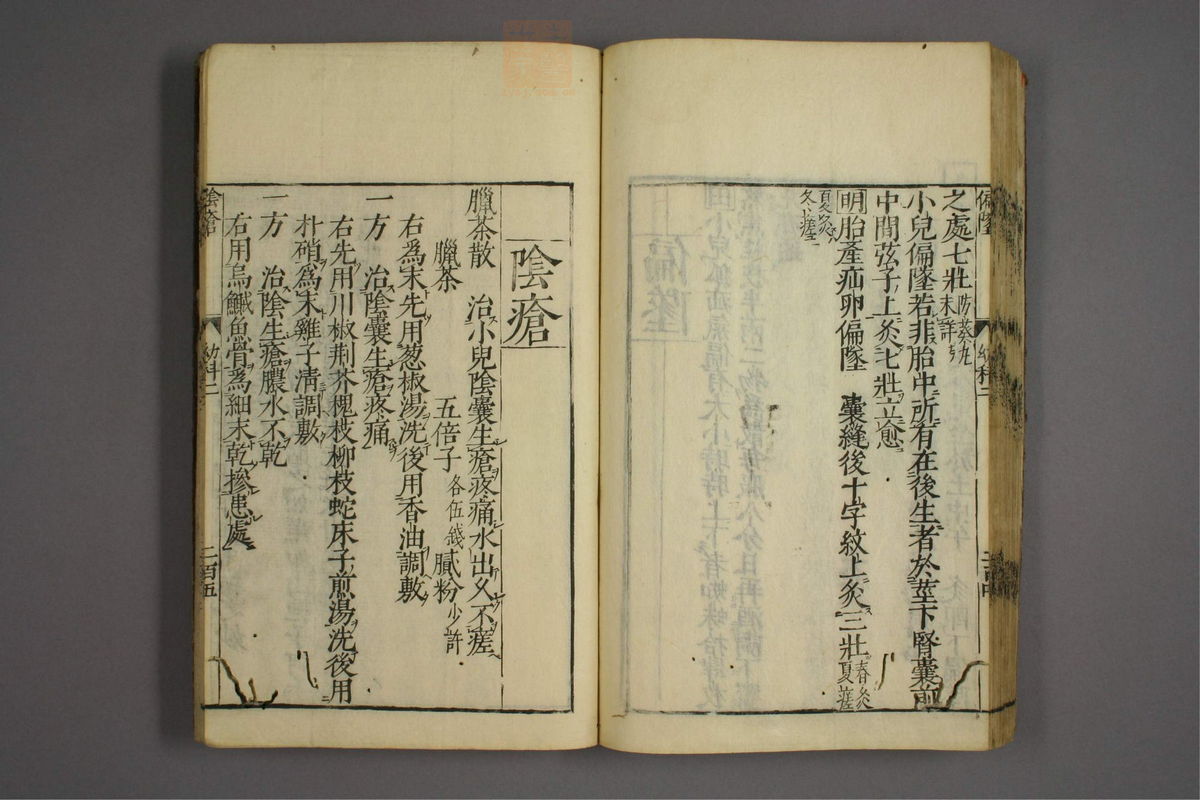 偏墜
幼科二
之處七壯
防葵九
未詳
小兒偏墜若非胎中所有在後生者於莖下腎囊前
中間弦子上灸七壯立愈
明胎產疝卵偏墜 囊縫後十字紋上灸三壯春灸夏瘥
夏灸冬瘥
陰瘡
臘茶散 治小兒陰囊生瘡疼痛水出又不瘥
臘茶 五倍子各伍錢 膩粉少許
右爲末先用葱椒湯洗後用香油調敷
一方 治陰囊生瘡疼痛
右先用川椒荊芥槐枝柳枝蛇床子煎湯洗後用
朴硝爲末雞子清調敷
一方 治陰生瘡膿水不乾
右用烏鰂魚骨爲細末乾摻患處
陰瘡
幼科二
二百五